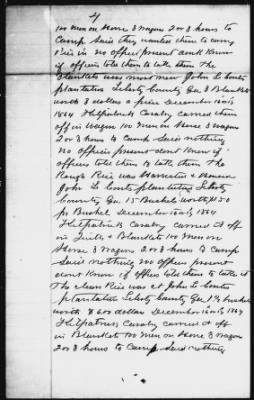 4
100 men on Horse 3 Wagons 2 or 3 hours to
Camp Said they wanted them to carry
Rice in no officer present dont Know
if officers told them to take them The
Blankets was most new John L
plantation Liberty County Ga 3 Blankets
worth 3 dollars a piece December 15 or 16
1864 Kilpatricks Cavalry carried them
off in Wagon 100 men on Horse 3 wagons
2 or 3 hours to Camp Said nothing
no officers present dont Know if
officers told them to take them The
Rough Rice was Harvested &
John L plantation Liberty
County Ga 15 Bushel worth $1.50
pr Bushel December 15 or 16 1864
Kilpatricks Cavalry carried it off
in & Blankets 100 men on
Horse 3 wagons 2 or 3 hours to Camp
Said nothing no officer present
dont Know if officer told them to take it
The clean Rice was at John L
plantation Liberty County Ga 1½ bushel
worth $6.00 dollar December 15 or 16 1864
Kilpatricks Cavalry carried it off
in Blankets 100 men on Horse 3 wagons
2 or 3 hours to Camp Said nothing